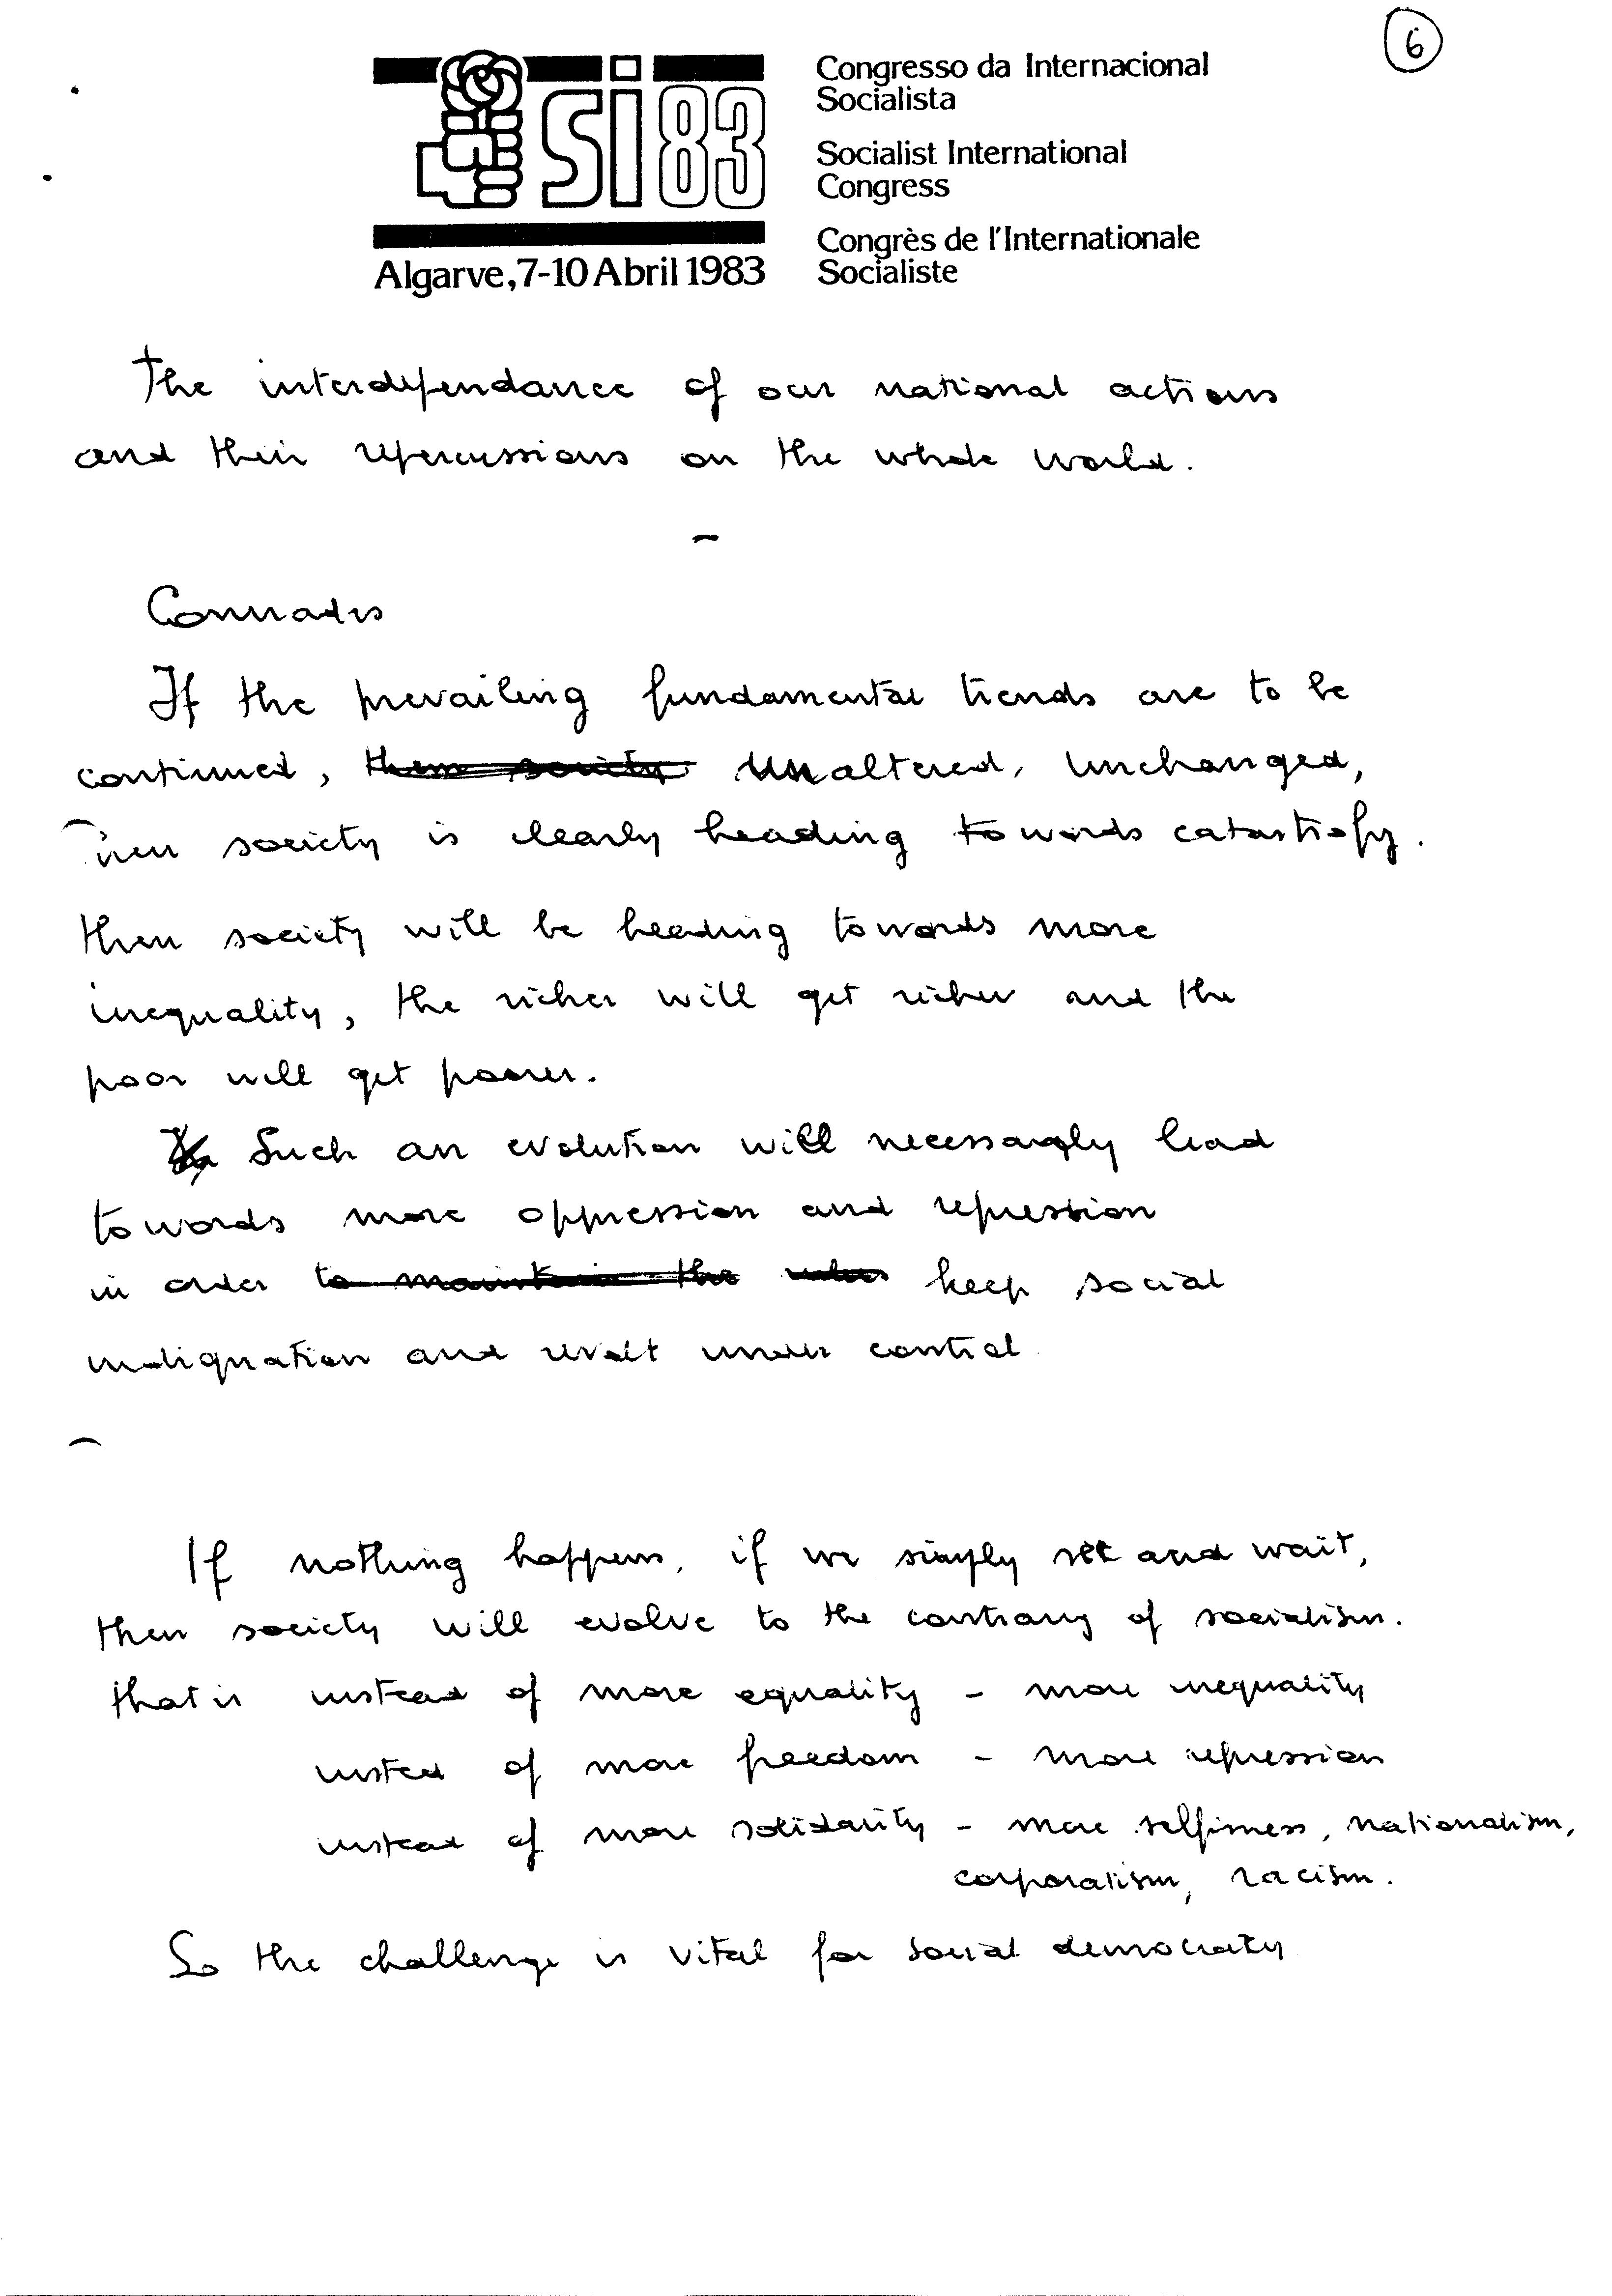 6
SI 83
Algarve, 7-10 Abril 1983
Congresso da Internacional
Socialista
Socialist International
Congress
Congrès de l'Internationale
Socialiste
The interdependance of our national actions
and their repercussions on the whole world.
Comrades
If the prevailing fundamental trends are to be
continued, then society unaltered, unchanged,
Then society is clearly heading towards catastrofy.
then society will be heading towards more
inequality, the richer will get richer and the
poor will get poorer.
Such an evolution will necessaryly lead
towards more oppression and repression
in order to maintain the rules keep social
indignation and revolt under control
If nothing happens, if we simply sit and wait,
then society will evolve to the contrary of socialism.
that is instead of more equality - more inequality
insted of more freedom - more repression
instead of more solidarity - more selfisness, nationalism,
corporatism, racism.
So the challenge is vital for social democraty